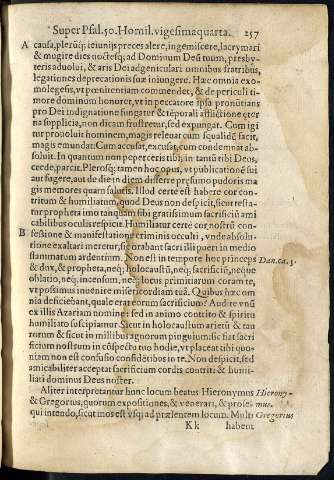 Super Psal. 50. Homil. vigesimaquarta. 257
A causa, plerūq; ieiunijs preces alere, ingemiscere, lacrymari
& mugire dies noctesq; ad Dominum Deū tuum, presby-
teris aduolui, & aris Dei adgeniculari omnibus fratribus,
legationes deprecationis suæ iniungere. Hæc omnia exo-
mologesis, vt pœnitentiam commendet, & de periculi ti-
more dominum honoret, vt in peccatore ipsa pronūtians
pro Dei indignatione fungatur & tēporali afflictione æter
na supplicia, non dicam frustretur, sed expungat. Cum igi
tur prouoluit hominem, magis releuat cum squalidū facit,
magis emundat: Cum accusat, excusat, cum condemnat ab-
soluit. In quantum non peperceris tibi, in tantū tibi Deus,
crede, parcit. Plerosq; tamen hoc opus, vt publicationē sui
aut sugere, aut de die in diem differre præsumo pudoris ma
gis memores quam salutis. Illud certe est habere cor con-
tritum & humiliatum, quod Deus non despicit, sicut testa-
tur propheta imo tanquam sibi gratissimum sacrificiū ami
cabilibus oculis respicit. Humiliatur certe cor nostrū con-
B fessione & manifestatione criminis occulti, vnde absolu-
tione exaltari meretur, sic orabant sacri illi pueri in medio
flammarum ardentium. Non est in tempore hoc princeps Dan. ca. 3.
& dux, & propheta, neq; holocaustū, neq; sacrificiū, neque
oblatio, neq; incensum, neq; locus primitiarum coram te,
vt possimus inuenire misericordiam tuā. Quibus hæc om
nia deficiebant, quale erat eorum sacrificium? Audite vnū
ex illis Azariam nomine: sed in animo contrito & spiritu
humiliato suscipiamur. Sicut in holocaustum arietū & tau
rorum & sicut in millibus agnorum pinguium: sic fiat sacri
ficium nostrum in cōspectu tuo hodie, vt placeat tibi quo-
niam non est confusio confidētibus in te. Non despicit, sed
amicabiliter acceptat sacrificium cordis contriti & humi-
liati dominus Deus noster.
Aliter interpretantur hunc locum beatus Hieronymus Hierony-
& Gregorius, quorum expositiones, & venerari, & prose- mus.
qui intendo, sicut mos est vsq; ad præsentem locum. Multi Gregorius
Kk habent